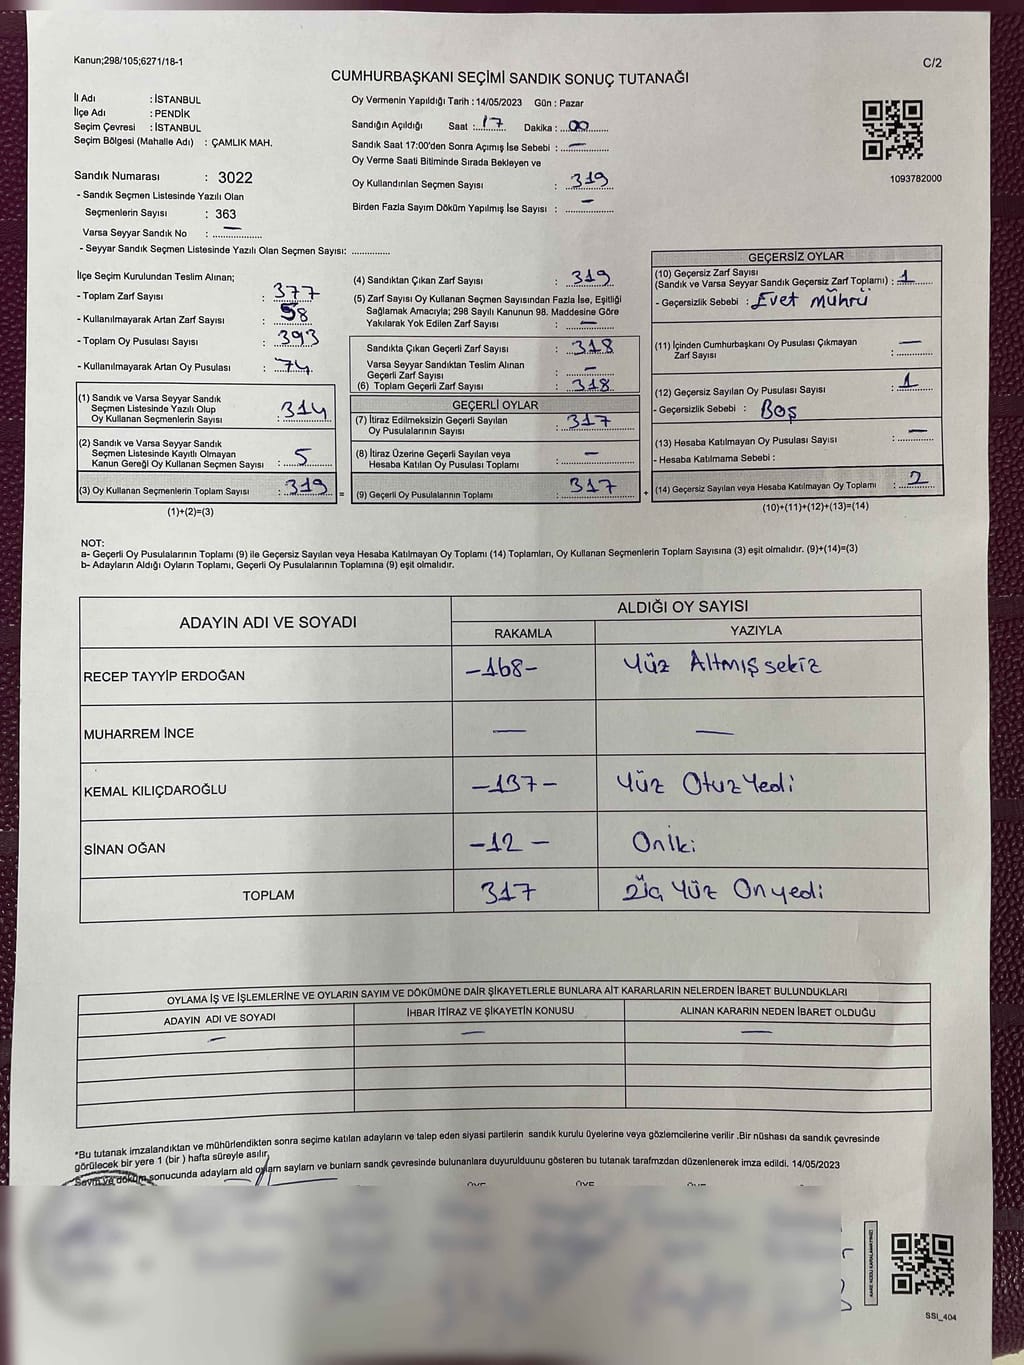 Kanun;298/105;6271/18-1
C/2
CUMHURBAŞKANI SEÇİMİ SANDIK SONUÇ TUTANAĞI
İl Adı : İSTANBUL
İlçe Adı : PENDİK
Seçim Çevresi : İSTANBUL
Seçim Bölgesi (Mahalle Adı) : ÇAMLIK MAH.
Sandık Numarası : 3022
- Sandık Seçmen Listesinde Yazılı Olan
Seçmenlerin Sayısı : 363
Varsa Seyyar Sandık No : —
- Seyyar Sandık Seçmen Listesinde Yazılı Olan Seçmen Sayısı: ..............
Oy Vermenin Yapıldığı Tarih : 14/05/2023 Gün : Pazar
Sandığın Açıldığı Saat : 17 Dakika : 00
Sandık Saat 17:00'den Sonra Açımış İse Sebebi : —
Oy Verme Saati Bitiminde Sırada Bekleyen ve
Oy Kullandırılan Seçmen Sayısı : 319
Birden Fazla Sayım Döküm Yapılmış İse Sayısı : —
1093782000
İlçe Seçim Kurulundan Teslim Alınan;
- Toplam Zarf Sayısı : 377
- Kullanılmayarak Artan Zarf Sayısı : 58
- Toplam Oy Pusulası Sayısı : 393
- Kullanılmayarak Artan Oy Pusulası : 74
(1) Sandık ve Varsa Seyyar Sandık
Seçmen Listesinde Yazılı Olup
Oy Kullanan Seçmenlerin Sayısı : 314
(2) Sandık ve Varsa Seyyar Sandık
Seçmen Listesinde Kayıtlı Olmayan
Kanun Gereği Oy Kullanan Seçmen Sayısı : 5
(3) Oy Kullanan Seçmenlerin Toplam Sayısı : 319 =
(1)+(2)=(3)
(4) Sandıktan Çıkan Zarf Sayısı : 319
(5) Zarf Sayısı Oy Kullanan Seçmen Sayısından Fazla İse, Eşitliği
Sağlamak Amacıyla; 298 Sayılı Kanunun 98. Maddesine Göre
Yakılarak Yok Edilen Zarf Sayısı : —
Sandıkta Çıkan Geçerli Zarf Sayısı : 318
Varsa Seyyar Sandıktan Teslim Alınan
Geçerli Zarf Sayısı : —
(6) Toplam Geçerli Zarf Sayısı : 318
GEÇERLİ OYLAR
(7) İtiraz Edilmeksizin Geçerli Sayılan
Oy Pusulalarının Sayısı : 317
(8) İtiraz Üzerine Geçerli Sayılan veya
Hesaba Katılan Oy Pusulası Toplamı : —
(9) Geçerli Oy Pusulalarının Toplamı : 317 +
GEÇERSİZ OYLAR
(10) Geçersiz Zarf Sayısı
(Sandık ve Varsa Seyyar Sandık Geçersiz Zarf Toplamı) : 1
- Geçersizlik Sebebi : Evet mührü
(11) İçinden Cumhurbaşkanı Oy Pusulası Çıkmayan
Zarf Sayısı : —
(12) Geçersiz Sayılan Oy Pusulası Sayısı : 1
- Geçersizlik Sebebi : Boş
(13) Hesaba Katılmayan Oy Pusulası Sayısı : —
- Hesaba Katılmama Sebebi :
(14) Geçersiz Sayılan veya Hesaba Katılmayan Oy Toplamı : 2
(10)+(11)+(12)+(13)=(14)
NOT:
a- Geçerli Oy Pusulalarının Toplamı (9) ile Geçersiz Sayılan veya Hesaba Katılmayan Oy Toplamı (14) Toplamları, Oy Kullanan Seçmenlerin Toplam Sayısına (3) eşit olmalıdır. (9)+(14)=(3)
b- Adayların Aldığı Oyların Toplamı, Geçerli Oy Pusulalarının Toplamına (9) eşit olmalıdır.
ADAYIN ADI VE SOYADI ALDIĞI OY SAYISI
RAKAMLA YAZIYLA
RECEP TAYYİP ERDOĞAN -168- Yüz Altmış sekiz
MUHARREM İNCE — —
KEMAL KILIÇDAROĞLU -137- Yüz Otuz Yedi
SİNAN OĞAN -12- Oniki
TOPLAM 317 Üç Yüz Onyedi
OYLAMA İŞ VE İŞLEMLERİNE VE OYLARIN SAYIM VE DÖKÜMÜNE DAİR ŞİKAYETLERLE BUNLARA AİT KARARLARIN NELERDEN İBARET BULUNDUKLARI
ADAYIN ADI VE SOYADI İHBAR İTİRAZ VE ŞİKAYETİN KONUSU ALINAN KARARIN NEDEN İBARET OLDUĞU
— — —
*Bu tutanak imzalandıktan ve mühürlendikten sonra seçime katılan adayların ve talep eden siyasi partilerin sandık kurulu üyelerine veya gözlemcilerine verilir .Bir nüshası da sandık çevresinde
görülecek bir yere 1 (bir ) hafta süreyle asılır.
Sayım ve döküm sonucunda adayların ald oyların sayların ve bunların sandık çevresinde bulunanlara duyurulduunu gösteren bu tutanak tarafmzdan düzenlenerek imza edildi. 14/05/2023
SSI_404